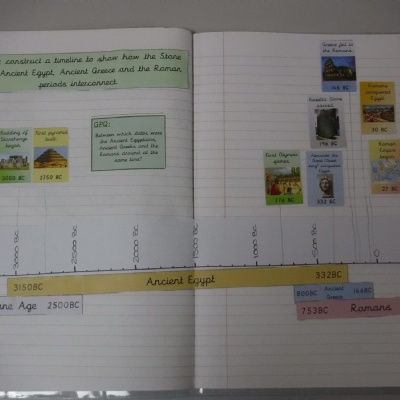 construct a timeline to show how the Stone
Ancient Egypt, Ancient Greece and the Roman
periods interconnect.
Building of
Stonehenge
began.
3000 BC
First pyramid
built.
2750 BC
GPQ:
Between which dates were
the Ancient Egyptians,
Ancient Greeks and the
Romans around at the
same time?
Greece fell to
the Romans.
146 BC
Rosetta Stone
carved.
196 BC
Romans
conquered
Egypt.
30 BC
First Olympics
games.
776 BC
Alexander the
Great
conquered
Egypt.
332 BC
Roman
Empire
began.
27 BC
3000 BC
2500 BC
2000 BC
1500 BC
1000 BC
500 BC
0
3150BC Ancient Egypt 332BC
ne Age 2500BC
800BC Ancient Greece 146BC
753BC Romans